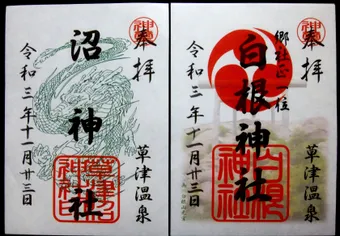 奉拝
沼神社
令和三年十一月廿三日
草津温泉
奉拝
郷社正一位
白根神社
令和三年十一月廿三日
草津温泉
白根
神社